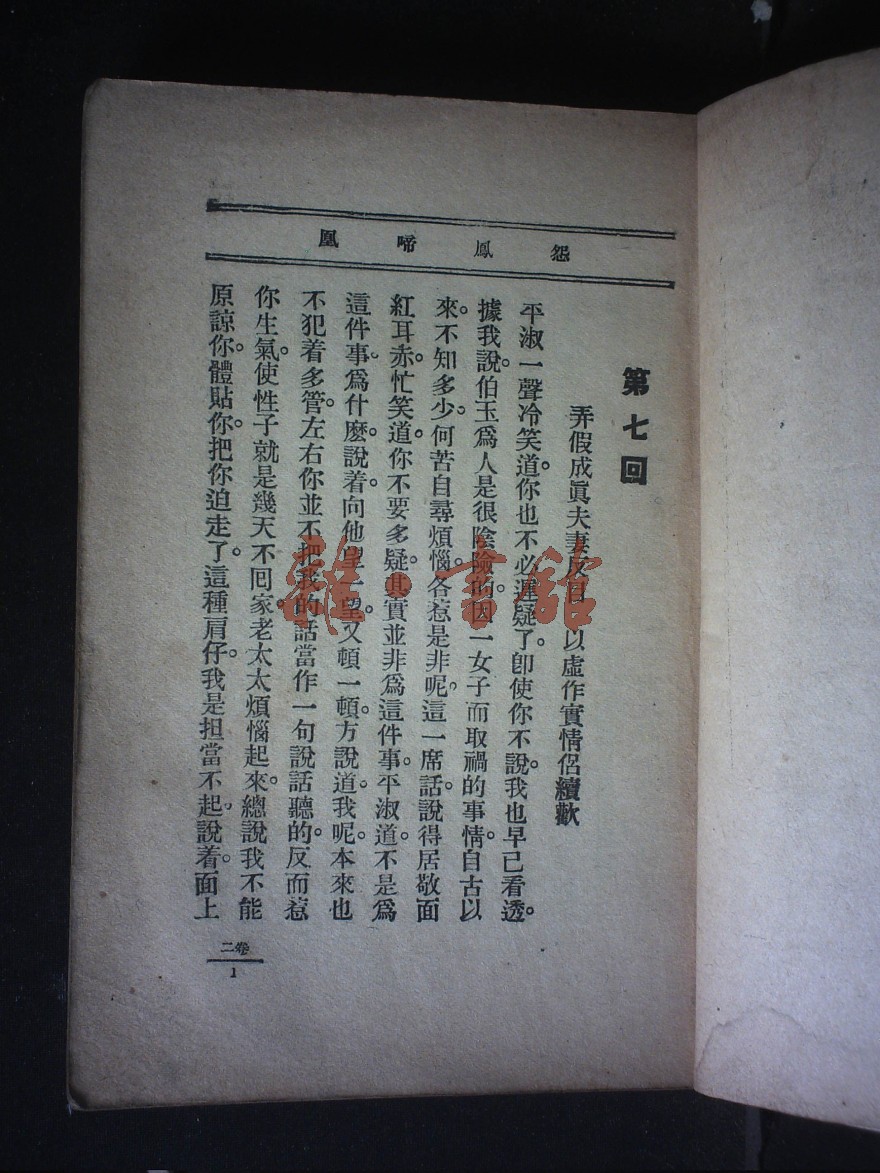 怨鳳啼凰
第七回
弄假成眞夫妻反目　以虛作實情侶續歡
平淑一聲冷笑道。你也不必遲疑了。卽使你不說。我也早已看透。
據我說。伯玉爲人是很陰險的。因一女子而取禍的事情。自古以
來。不知多少。何苦自尋煩惱。各惹是非呢。這一席話。說得居敬面
紅耳赤。忙笑道。你不要多疑。其實並非爲這件事。平淑道。不是爲
這件事。爲什麼。說着。向他望一望。又頓一頓。方說道。我呢。本來也
不犯着多管。左右你並不把我的話當作一句說話聽的。反而惹
你生氣。使性子就是幾天不囘家。老太太煩惱起來。總說我不能
原諒你。體貼你。把你迫走了。這種肩仔。我是担當不起。說着。面上
卷二
1
雜·書館